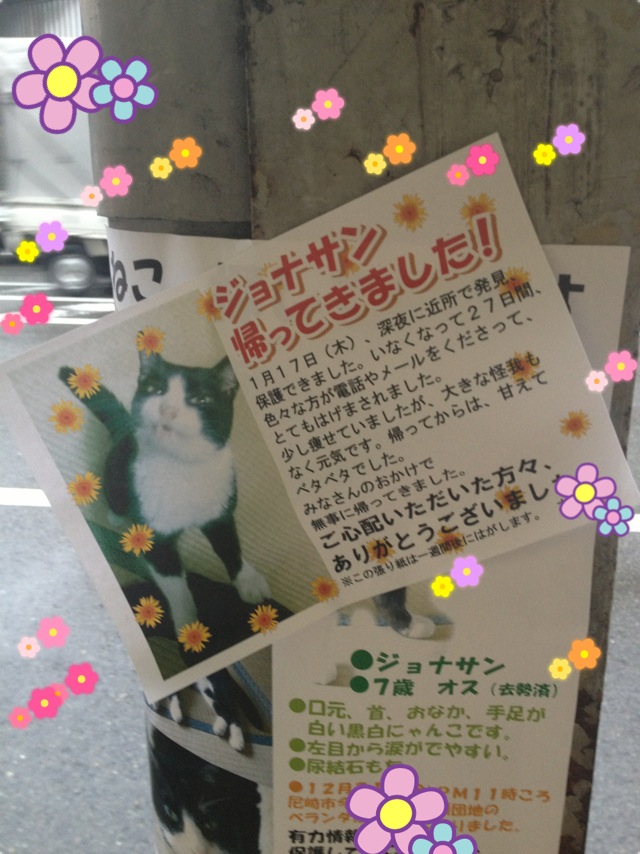 ねこ
ジョナサン
帰ってきました!
1月17日(木)、深夜に近所で発見、
保護できました。いなくなって27日間、
色々な方が電話やメールをくださって、
とてもはげまされました。
少し痩せていましたが、大きな怪我も
なく元気です。帰ってからは、甘えて
ベタベタでした。
みなさんのおかげで
無事に帰ってきました。
ご心配いただいた方々、
ありがとうございまし
※この張り紙は一週間後にはがします。
●ジョナサン
●7歳 オス(去勢済)
●口元、首、おなか、手足が
白い黒白にゃんこです。
●左目から涙がでやすい。
●尿結石も
●12月 PM11時ころ
尼崎市 団地の
ベラン りました。
有力情報
保護して